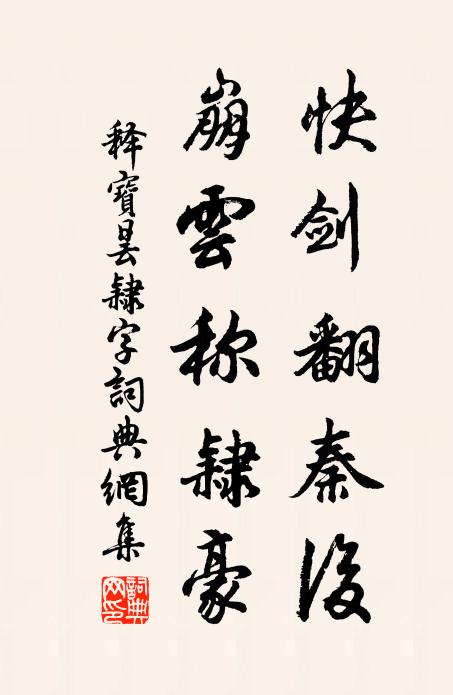 快剑翻秦後
崩雲称隸豪
释寶曇隸字詞典網集
詞典網印